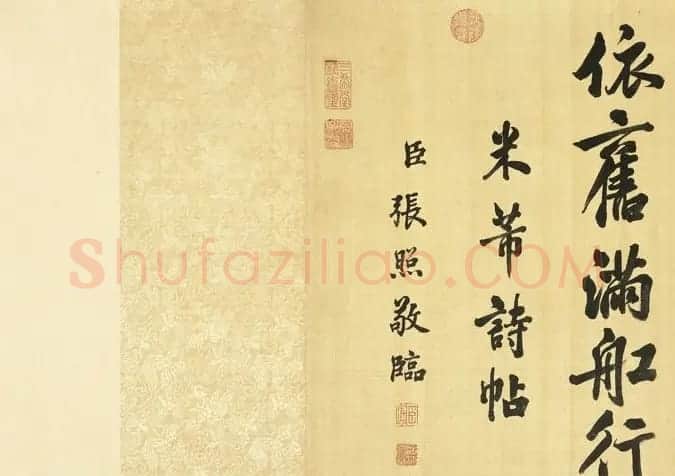 依舊滿舡行
米芾詩帖
臣張照敬臨
Shufaziliao.COM